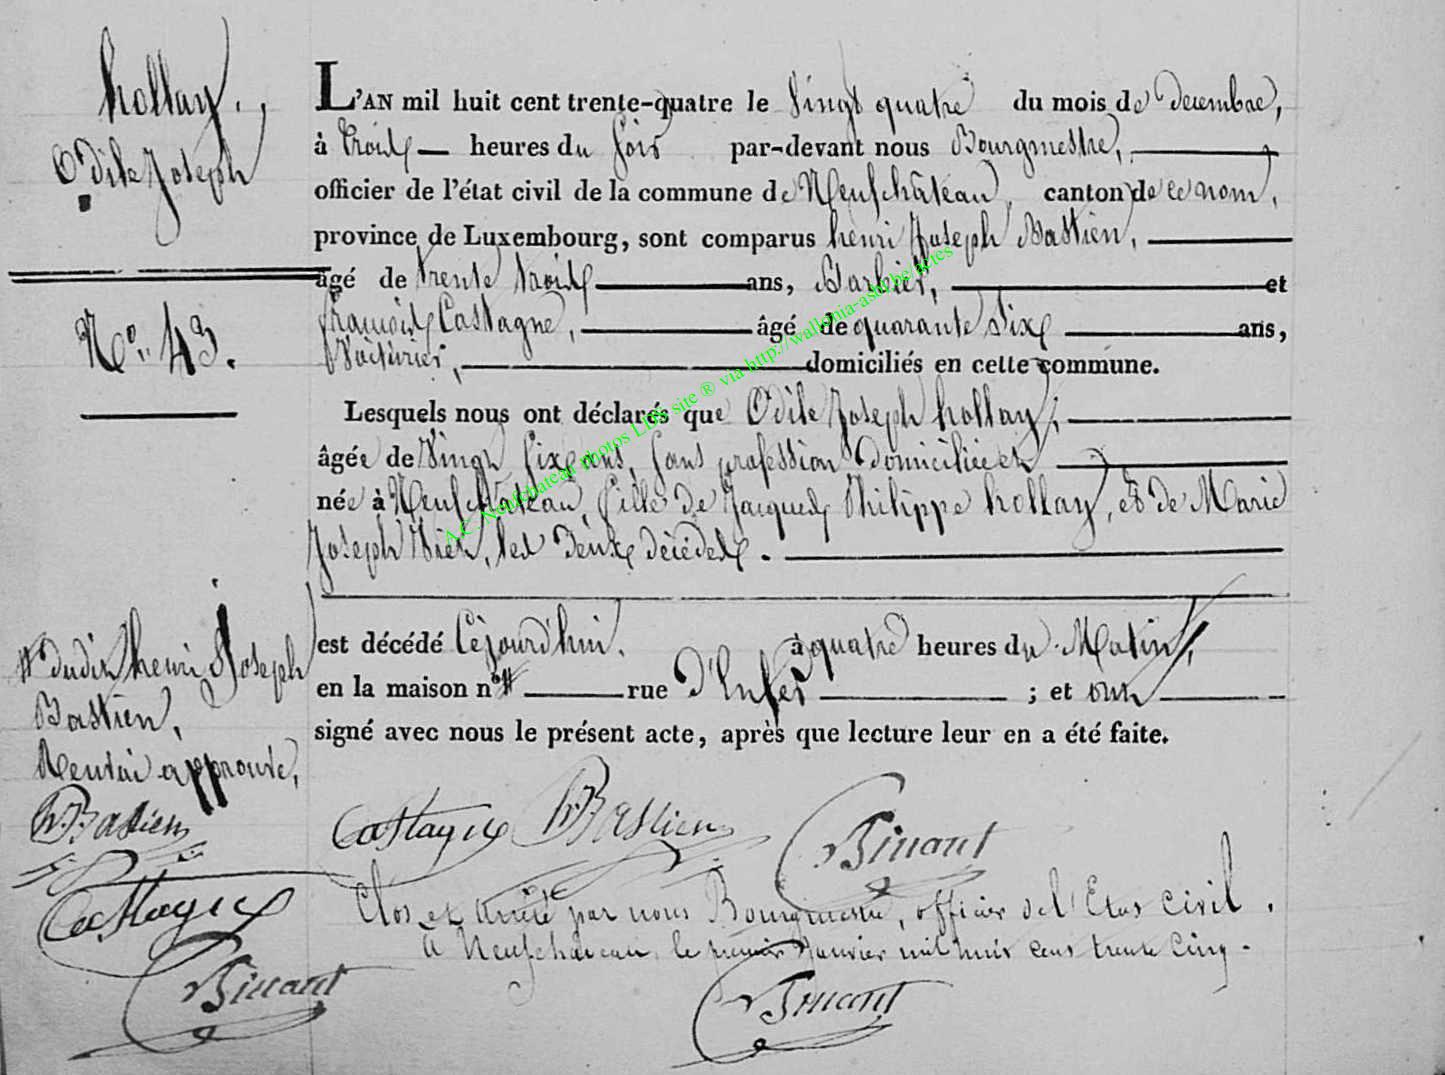 hollay.,
Odile Joseph
N°. 43.
L'AN mil huit cent trente-quatre le Vingt quatre du mois de decembre,
à trois heures du Soir par-devant nous Bourgmestre,
officier de l'état civil de la commune de Neufchâteau, canton de ce nom,
province de Luxembourg, sont comparus henri Joseph Bastien,
âgé de trente trois ans, Barbier, et
françois Castagne, âgé de quarante Six ans,
Voiturier, domiciliés en cette commune.
Lesquels nous ont déclarés que Odile Joseph hollay,
âgée de Vingt Six ans, Sans profession domiciliée et
née à Neufchâteau, fille de Jacques Philippe hollay, et de Marie
Joseph, les deux décédés.
est décédé Cejourd'hui. à quatre heures du Matin,
en la maison n° # rue D'Enfer ; et ont
signé avec nous le présent acte, après que lecture leur en a été faite.
# dudit henri Joseph
Bastien,
Renvoi approuvé,
h. Bastien
Castagne
Binant
Castagne h. Bastien Binant
Clos et arrêté par nous Bourgmestre, officier de l'Etat civil.
à Neufchateau, le premier Janvier mil huit cent trente cinq.
Binant
A.C. Neufchateau photos LDS site ® via http://wallonia-asbl.be/actes